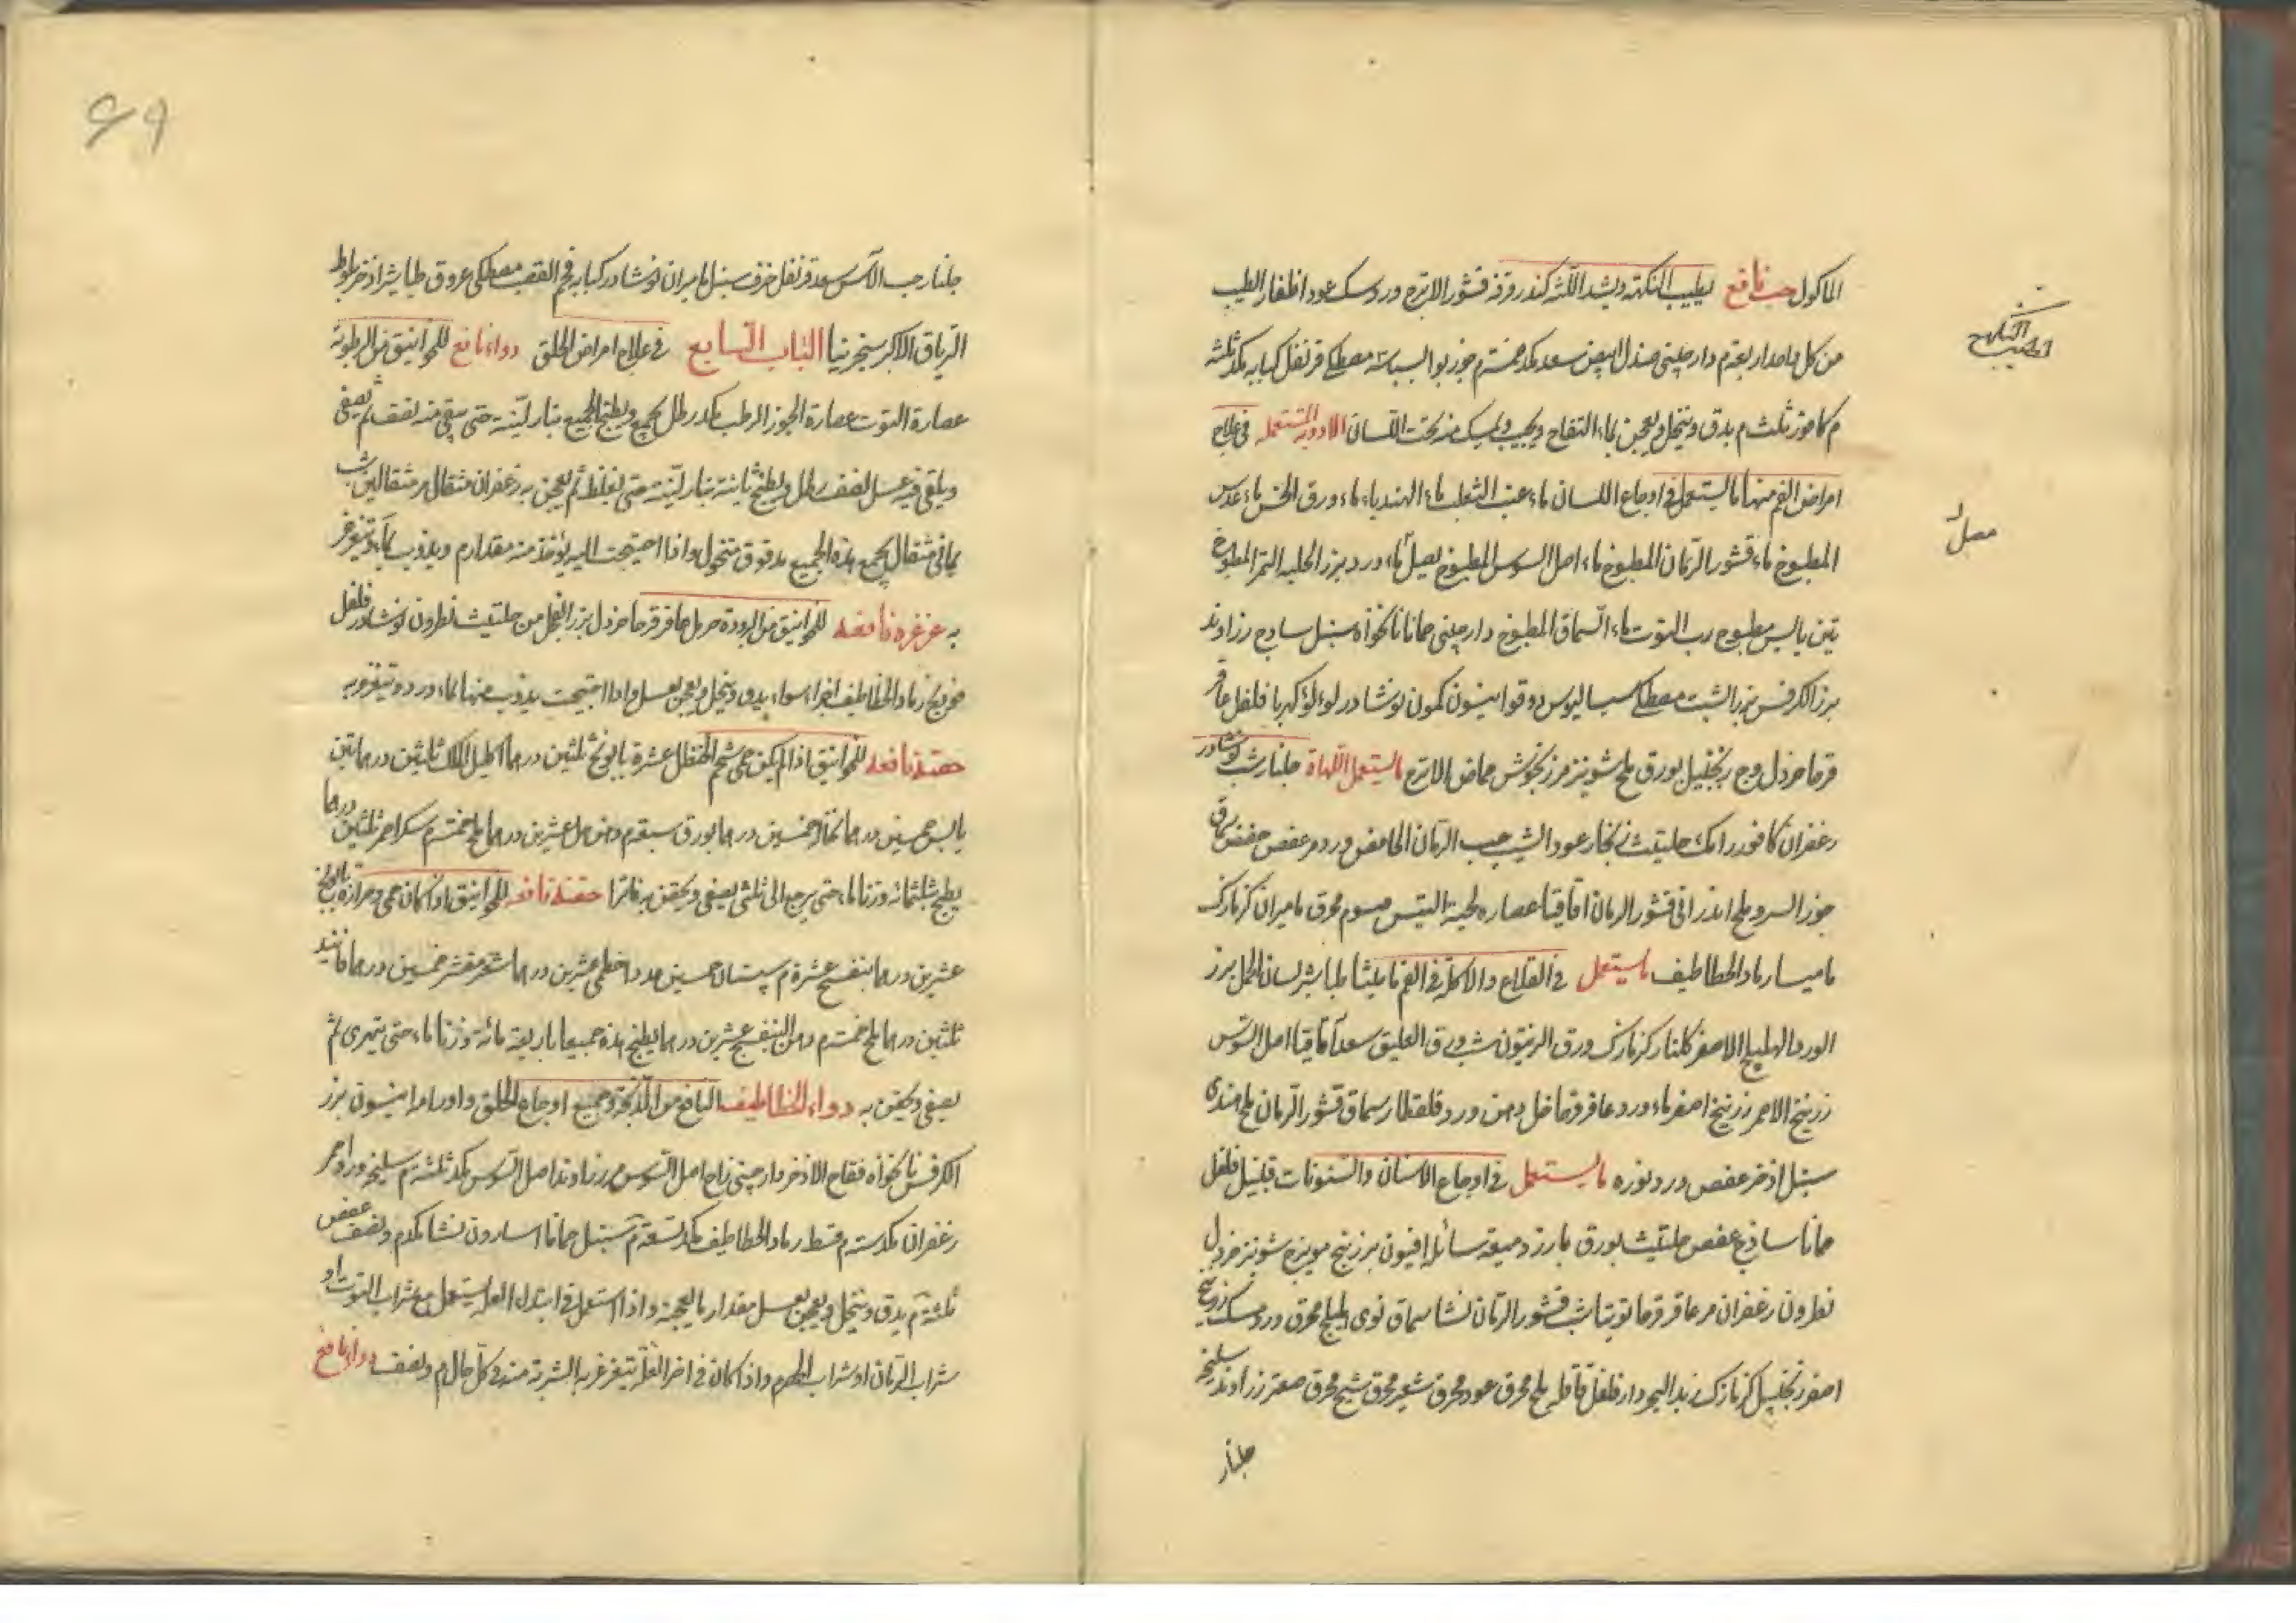 الماكول حب نافع يطيب النكهة ويشد اللثة كندر قرفة قشور الاترج ورد سك عود اظفار الطيب
من كل واحد اربعة م دارچيني صندل ابيض سعد مكد خمسة م جوز بوا بسباسة مصطكى قرنفل كبابه مكد ثلثة
م كافور ثلث م يدق وينخل ويعجن بماء التفاح ويحبب ويمسك منه تحت اللسان الادوية المستعملة في علاج
امراض الفم منها ما يستعمل في اوجاع اللسان ماء عنب الثعلب ماء الهندباء ماء ورق الخس ماء عدس
المطبوخ ماء قشور الرمان المطبوخ ماء اصل السوس المطبوخ بصل ماء ورد بزر الحلبه التمر المطبوخ
تين يابس مطبوخ رب التوت ماء السماق المطبوخ دارچيني حماما نانخواه سنبل سادج زراوند
بزر الكرفس بزر الشبت مصطكى سساليوس دوقوا انيسون كمون نوشادر لولو كهربا فلفل عاقر
قرحا خردل وج زنجبيل بورق ملح شونيز مرزنجوش حماض الاترج ما يستعمل اللهاة جلنار شب نوشادر
زعفران كافور رامك حلتيث زنجار عود الشب حب الرمان الحامض ورد مر عفص حضض سماق
جوز السرو ملح اندراني قشور الرمان اقاقيا عصاره لحية التيس محرق ماميران كزمازك
ماميسا رماد الخطاطيف ما يستعمل في القلاع والاكلة في الفم ماميثا طباشير لسان الحمل بزر
الورد الهليلج الاصفر گلنار كزمازك ورق الزيتون شب ورق العليق سعد اقاقيا اصل السوس
زرنيخ الاحمر زرنيخ اصفر ماء ورد عاقرقرحا خل دهن ورد قلقطار سماق قشور الرمان ملح هندى
سنبل اذخر عفص ورد نوره ما يستعمل في اوجاع الاسنان والسنونات فلفل
حماما سادج عفص حلتيث بورق بارزد ميعة سائلة افيون بزر بنج مويزج شونيز خردل
نطرون زعفران مر عاقرقرحا قشور الرمان نشا سماق نوى اهليلج محرق ورد مسك زرنيخ
اصفر زنجبيل كزمازك زبد البحر دارفلفل قاقله ملح محرق عود محرق شعير محرق شيح محرق صعتر زراوند سليخه
جلنار
مصل
٤٩
جلنار حب الآس سعد قرنفل خزف سنبل ماميران نوشادر كبابه فحم القصب مصطكى عروق طباشير اذخر بلوط
الترياق الاكبر سنجرنيا الباب السابع في علاج امراض الحلق دواء نافع للخوانيق من الرطوبة
عصارة التوت عصارة الجوز الرطب مكد رطل يجمع ويطبخ الجميع بنار لينة حتى يبقى منه نصف ثم يصفى
ويلقى فيه عسل نصف رطل ويطبخ ثانية بنار لينة حتى يغلظ ثم يعجن به زعفران مثقال مر مثقالين شب
يماني مثقال يجمع هذه الجميع مدقوق منخول واذا احتيجت اليه يؤخذ منه مقدار م ويذوب بماء ويتغرغر
به غرغره نافعه للخوانيق من البرودة حرمل عاقرقرحا خردل بزر الفجل من حلتيث نطرون نوشادر فلفل
رماد الخطاطيف اجزاء سواء يدق وينخل ويعجن بعسل واذا احتيجت يذوب منها بماء ورد ويتغرغر به
حقنه نافعه للخوانيق اذا لم يكن حمى شحم الحنظل عشرة بابونج ثلثين درهما اكليل الملك ثلثين درهما تين
يابس خمسين درهما نخالة خمسين درهما بورق سبعة م دهن حل عشرين درهما ملح خمسة م سكر احمر ثلثين درهما
يطبخ بثلثمائه وزنا ماء حتى يرجع الى ثلثى يصفى ويحقن به فاترا حقنه نافعه للخوانيق اذا كان حمى وحرارة بابونج
عشرين درهما بنفسج عشرة م سپستان خمسين عددا خطمى عشرين درهما شعير مقشر خمسين درهما فانيذ
ثلثين درهما ملح خمسة م دهن البنفسج عشرين درهما يطبخ هذه جميعا باربعة مائة وزنا ماء حتى يتهرى ثم
يصفى ويحقن به دواء الخطاطيف النافع من الذبحة وجميع اوجاع الحلق واورام انيسون بزر
الكرفس نانخواه فقاح الاذخر دارچيني زاج اصل السوس مر زراوند اصل السوس مكد ثلثة م سليخه ورد احمر
زعفران مكد ستة م قسط رماد الخطاطيف مكد تسعة م سنبل حماما اسارون نشا مكد م ونصف عفص
ثلثة م يدق وينخل ويعجن بعسل مقدار ما يعجنه واذا استعمل في ابتداء العلة يستعمل مع شراب التوت او
شراب الرمان او شراب الحصرم واذا كان في اخر العلة يتغرغر به الشربة منه في كل حال م ونصف دواء نافع